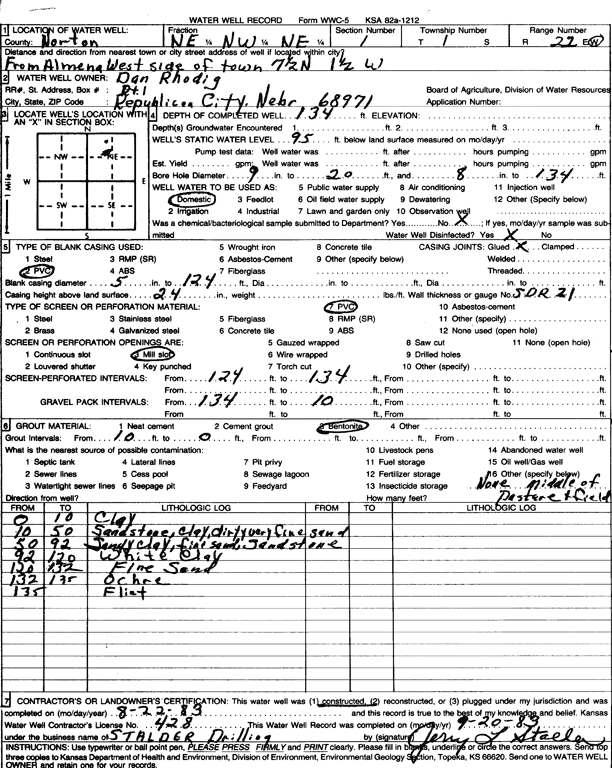 WATER WELL RECORD Form WWC-5 KSA 82a-1212
1 LOCATION OF WATER WELL: Fraction Section Number Township Number Range Number
County: Norton NE ¼ NW ¼ NE ¼ 1 T 1 S R 22 E(W)
Distance and direction from nearest town or city street address of well if located within city?
From Almena West side of town 7½N 1½ W
2 WATER WELL OWNER: Dan Rhodig
RR#, St. Address, Box # : Rt. 1 Board of Agriculture, Division of Water Resources
City, State, ZIP Code : Republican City, Nebr 68971 Application Number:
3 LOCATE WELL'S LOCATION WITH AN "X" IN SECTION BOX:
N
NW NE
W E
SW SE
S
1 Mile
4 DEPTH OF COMPLETED WELL 134 ft. ELEVATION:
Depth(s) Groundwater Encountered 1. ft. 2. ft. 3. ft.
WELL'S STATIC WATER LEVEL 95 ft. below land surface measured on mo/day/yr
Pump test data: Well water was ft. after hours pumping gpm
Est. Yield gpm: Well water was ft. after hours pumping gpm
Bore Hole Diameter 9 in. to 20 ft., and 8 in. to 134 ft.
WELL WATER TO BE USED AS: 5 Public water supply 8 Air conditioning 11 Injection well
Domestic 3 Feedlot 6 Oil field water supply 9 Dewatering 12 Other (Specify below)
2 Irrigation 4 Industrial 7 Lawn and garden only 10 Observation well
Was a chemical/bacteriological sample submitted to Department? Yes No X ; If yes, mo/day/yr sample was submitted
Water Well Disinfected? Yes X No
5 TYPE OF BLANK CASING USED: 5 Wrought iron 8 Concrete tile CASING JOINTS: Glued X Clamped
1 Steel 3 RMP (SR) 6 Asbestos-Cement 9 Other (specify below) Welded
2 PVC 4 ABS 7 Fiberglass Threaded
Blank casing diameter 5 in. to 124 ft., Dia in. to ft., Dia in. to ft.
Casing height above land surface 24 in., weight lbs./ft. Wall thickness or gauge No. SDR 21
TYPE OF SCREEN OR PERFORATION MATERIAL: 7 PVC 10 Asbestos-cement
1 Steel 3 Stainless steel 5 Fiberglass 8 RMP (SR) 11 Other (specify)
2 Brass 4 Galvanized steel 6 Concrete tile 9 ABS 12 None used (open hole)
SCREEN OR PERFORATION OPENINGS ARE: 5 Gauzed wrapped 8 Saw cut 11 None (open hole)
1 Continuous slot 3 Mill slot 6 Wire wrapped 9 Drilled holes
2 Louvered shutter 4 Key punched 7 Torch cut 10 Other (specify)
SCREEN-PERFORATED INTERVALS: From 124 ft. to 134 ft., From ft. to ft.
From ft. to ft., From ft. to ft.
GRAVEL PACK INTERVALS: From 134 ft. to 10 ft., From ft. to ft.
From ft. to ft., From ft. to ft.
6 GROUT MATERIAL: 1 Neat cement 2 Cement grout 3 Bentonite 4 Other
Grout Intervals: From 10 ft. to 0 ft., From ft. to ft., From ft. to ft.
What is the nearest source of possible contamination: 10 Livestock pens 14 Abandoned water well
1 Septic tank 4 Lateral lines 7 Pit privy 11 Fuel storage 15 Oil well/Gas well
2 Sewer lines 5 Cess pool 8 Sewage lagoon 12 Fertilizer storage 16 Other (specify below)
3 Watertight sewer lines 6 Seepage pit 9 Feedyard 13 Insecticide storage None middle of
Direction from well? How many feet? Pasture & field
FROM TO LITHOLOGIC LOG FROM TO LITHOLOGIC LOG
0 10 Clay
10 50 Sandstone, clay, dirty very fine sand
50 92 Sandy clay, fine sand, Sandstone
92 120 White Clay
120 132 Fine Sand
132 135 Ochre
135 Flint
7 CONTRACTOR'S OR LANDOWNER'S CERTIFICATION: This water well was (1) constructed, (2) reconstructed, or (3) plugged under my jurisdiction and was
completed on (mo/day/year) 8-22-83 and this record is true to the best of my knowledge and belief. Kansas
Water Well Contractor's License No. 428 This Water Well Record was completed on (mo/day/yr) 9-20-83
under the business name of STALDER Drilling by (signature) Jerry L Stalder
INSTRUCTIONS: Use typewriter or ball point pen, PLEASE PRESS FIRMLY and PRINT clearly. Please fill in blanks, underline or circle the correct answers. Send top
three copies to Kansas Department of Health and Environment, Division of Environment, Environmental Geology Section, Topeka, KS 66620. Send one to WATER WELL
OWNER and retain one for your records.